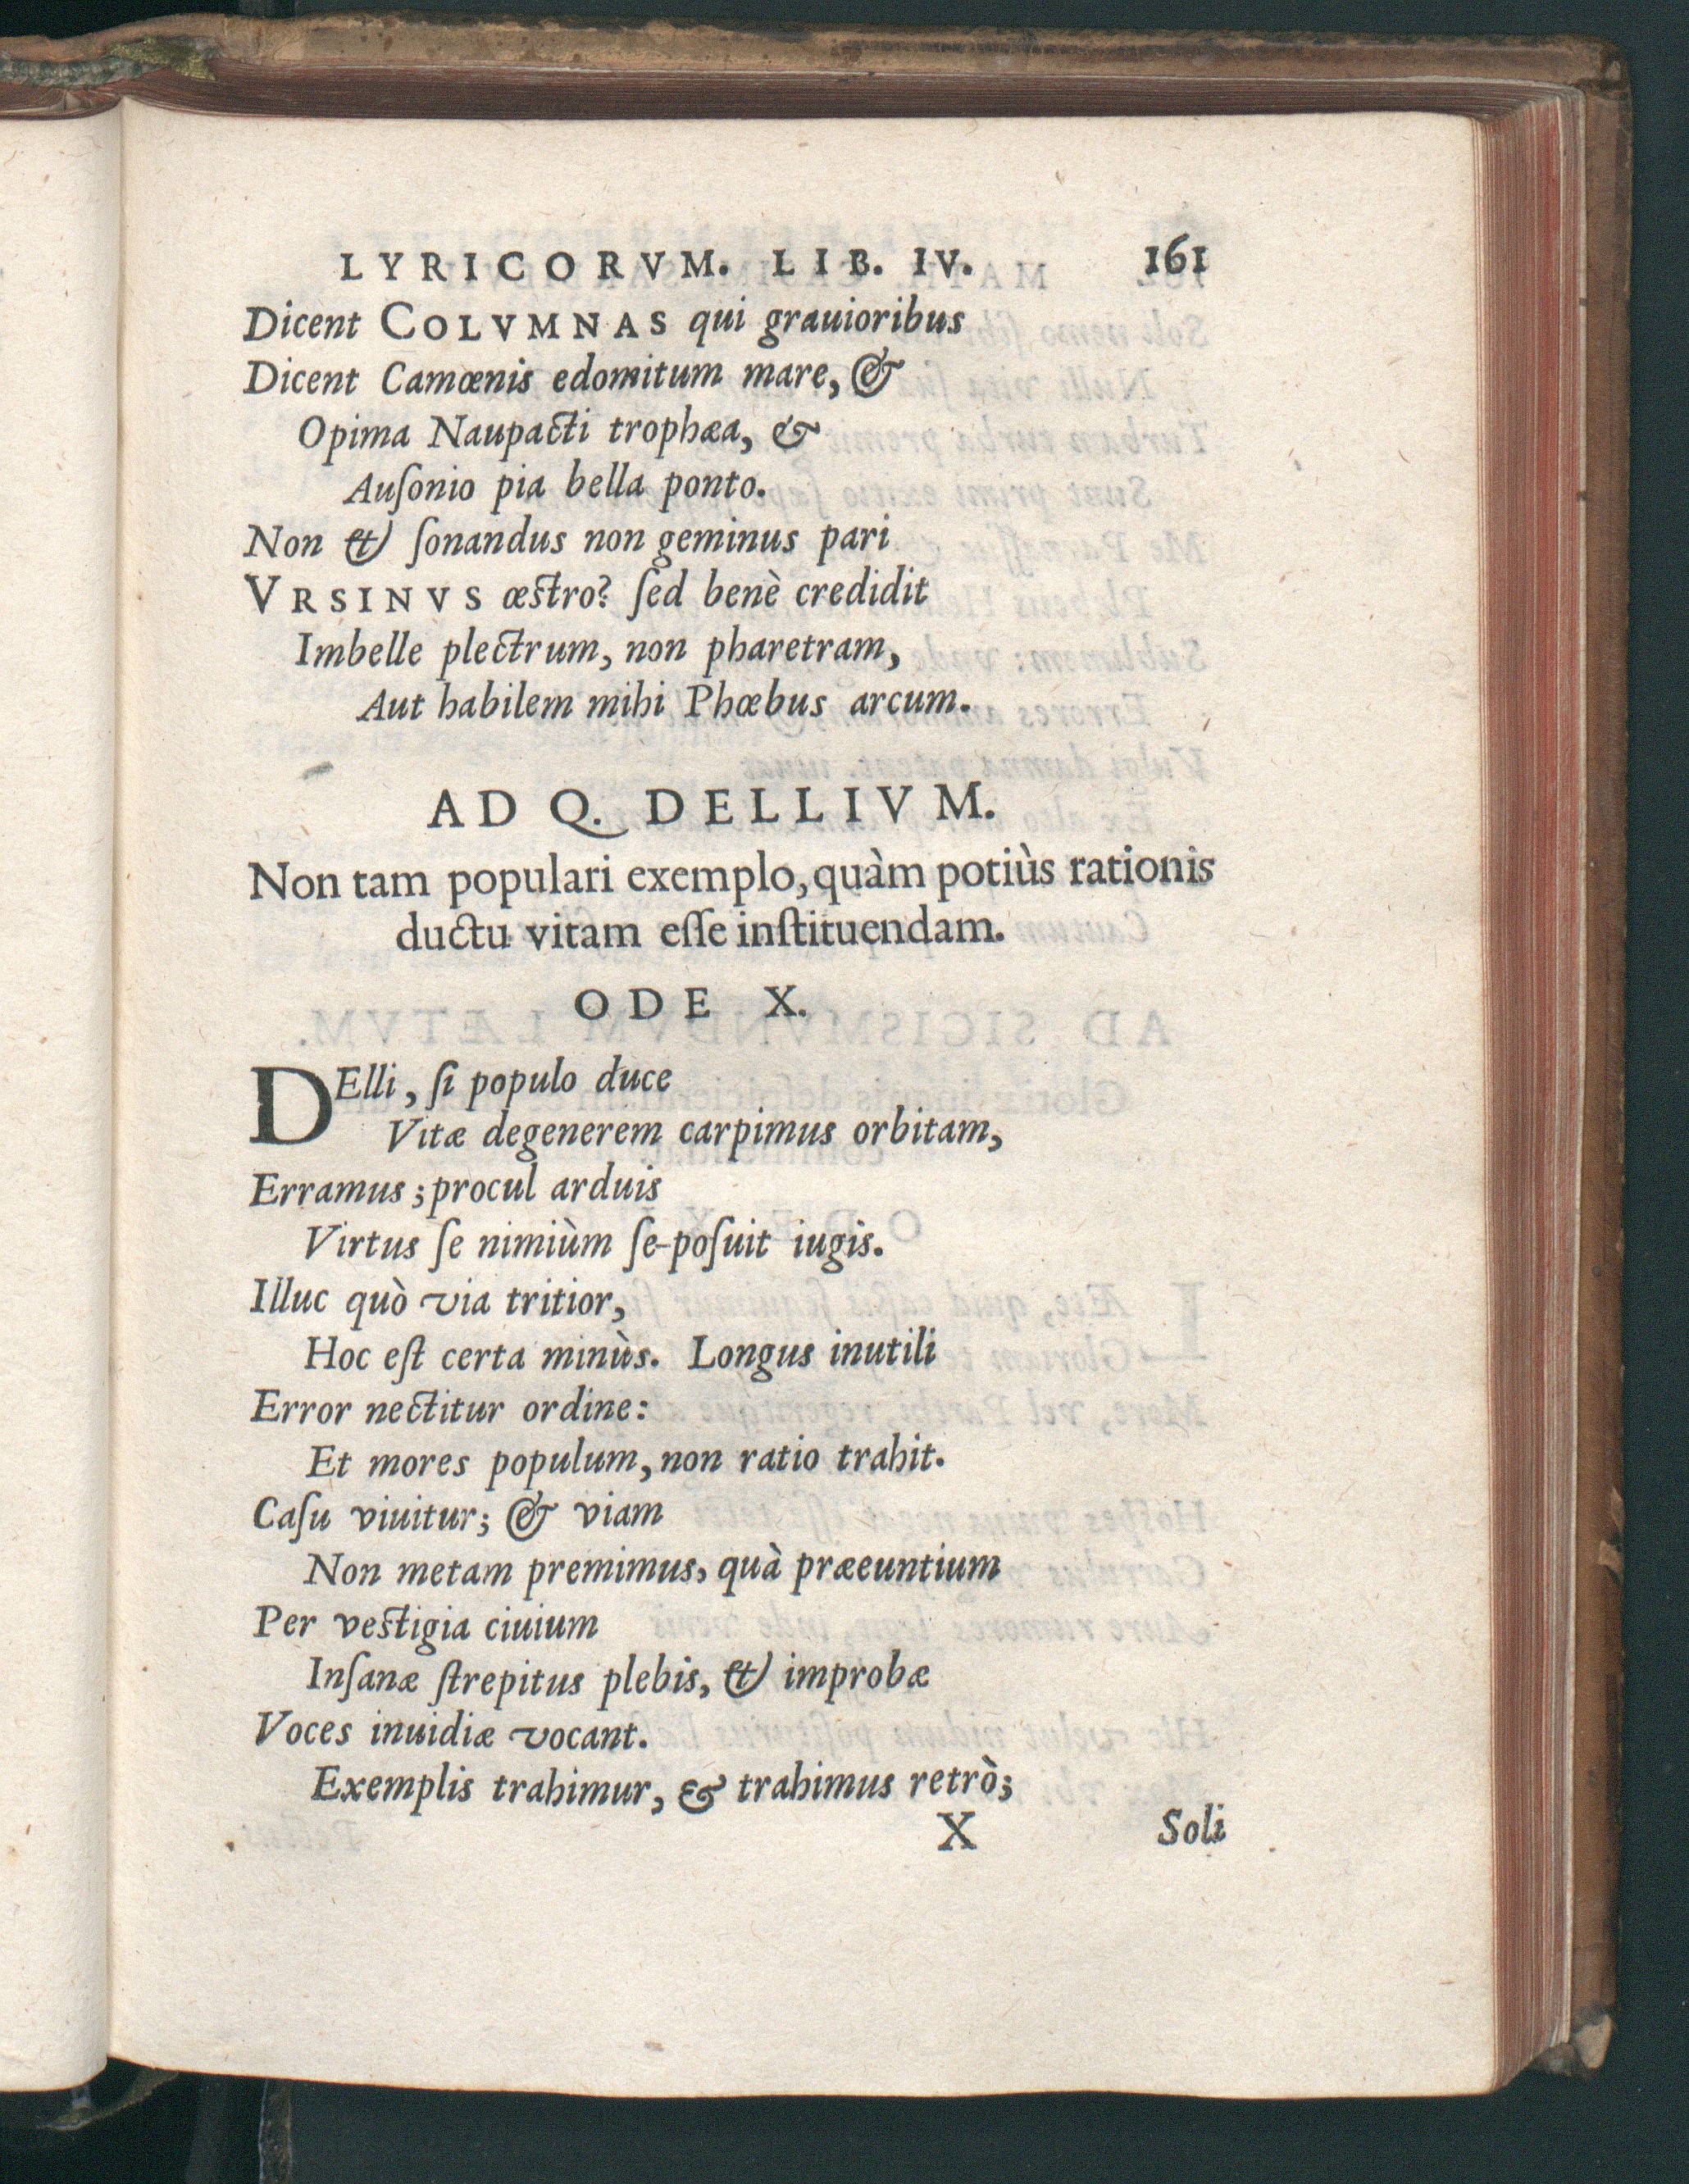 LYRICORVM. LIB. IV. 161
Dicent COLVMNAS qui grauioribus
Dicent Camœnis edomitum mare, &
Opima Naupacti trophæa, &
Auſonio pia bella ponto.
Non & ſonandus non geminus pari
VRSINVS œſtro? ſed benè credidit
Imbelle plectrum, non pharetram,
Aut habilem mihi Phœbus arcum.
AD Q. DELLIVM.
Non tam populari exemplo, quàm potiùs rationis
ductu vitam eſſe inſtituendam.
ODE X.
DElli, ſi populo duce
Vitæ degenerem carpimus orbitam,
Erramus; procul arduis
Virtus ſe nimiùm ſe-poſuit iugis.
Illuc quò via tritior,
Hoc eſt certa minùs. Longus inutili
Error nectitur ordine:
Et mores populum, non ratio trahit.
Caſu viuitur; & viam
Non metam premimus, quà præeuntium
Per veſtigia ciuium
Inſanæ ſtrepitus plebis, & improbæ
Voces inuidiæ vocant.
Exemplis trahimur, & trahimus retrò;
X Soli